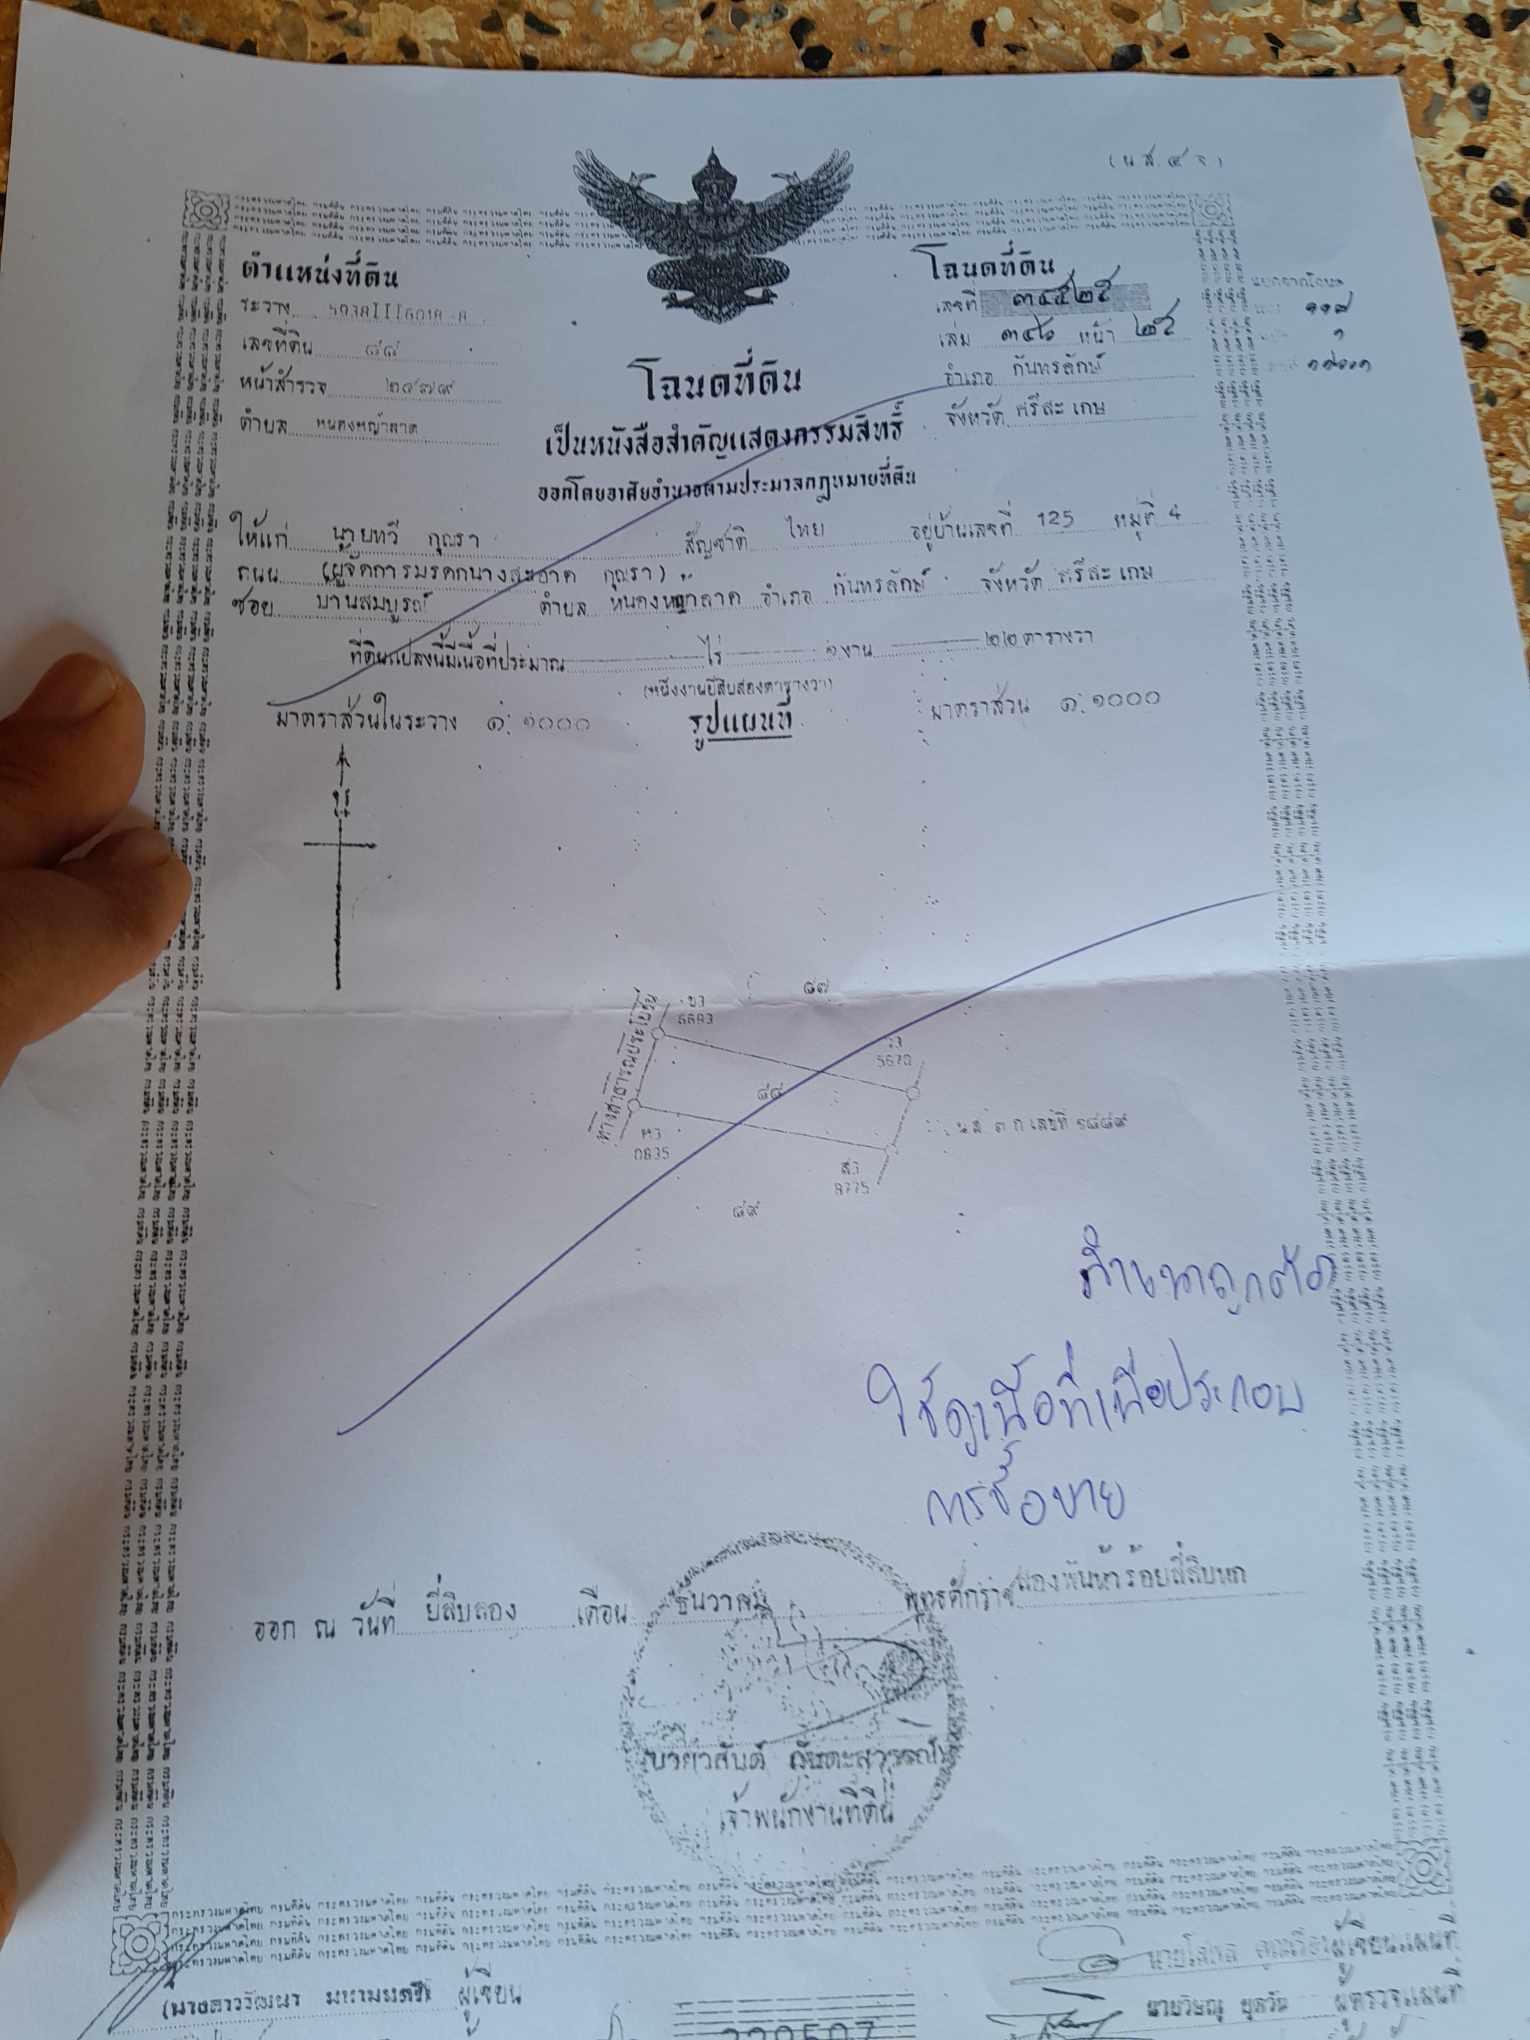 (น.ส.๔ จ)
ตำแหน่งที่ดิน
ระวาง 5938III6018-8
เลขที่ดิน ๘๘
หน้าสำรวจ ๒๔๗๙
ตำบล หนองหญ้าลาด
โฉนดที่ดิน
เลขที่ ๓๔๕๒๕
เล่ม ๓๔๖ หน้า ๒๕
อำเภอ กันทรลักษ์
จังหวัด ศรีสะเกษ
โฉนดที่ดิน
เป็นหนังสือสำคัญแสดงกรรมสิทธิ์
ออกโดยอาศัยอำนาจตามประมวลกฎหมายที่ดิน
ให้แก่ นายทวี กุณรา สัญชาติ ไทย อยู่บ้านเลขที่ 125 หมู่ที่ 4
ถนน (ผู้จัดการมรดกนางสะอาด กุณรา)
ซอย บ้านสมบูรณ์ ตำบล หนองหญ้าลาด อำเภอ กันทรลักษ์ จังหวัด ศรีสะเกษ
ที่ดินแปลงนี้มีเนื้อที่ประมาณ ไร่ ๑ งาน ๒๒ ตารางวา
(หนึ่งงานยี่สิบสองตารางวา)
มาตราส่วนในระวาง ๑:๑๐๐๐ รูปแผนที่ มาตราส่วน ๑:๑๐๐๐
๘๗
ทางสาธารณประโยชน์
5693
5670
๘๘
น.ส. ๓ ก เลขที่
0835
8775
๘๙
สำเนาถูกต้อง
ใช้ดูเนื้อที่เพื่อประกอบ
การซื้อขาย
ออก ณ วันที่ ยี่สิบสอง เดือน ธันวาคม พุทธศักราช สองพันห้าร้อยสี่สิบหก
เจ้าพนักงานที่ดิน
ผู้เขียน
ผู้เขียนแผนที่
ผู้ตรวจแผนที่